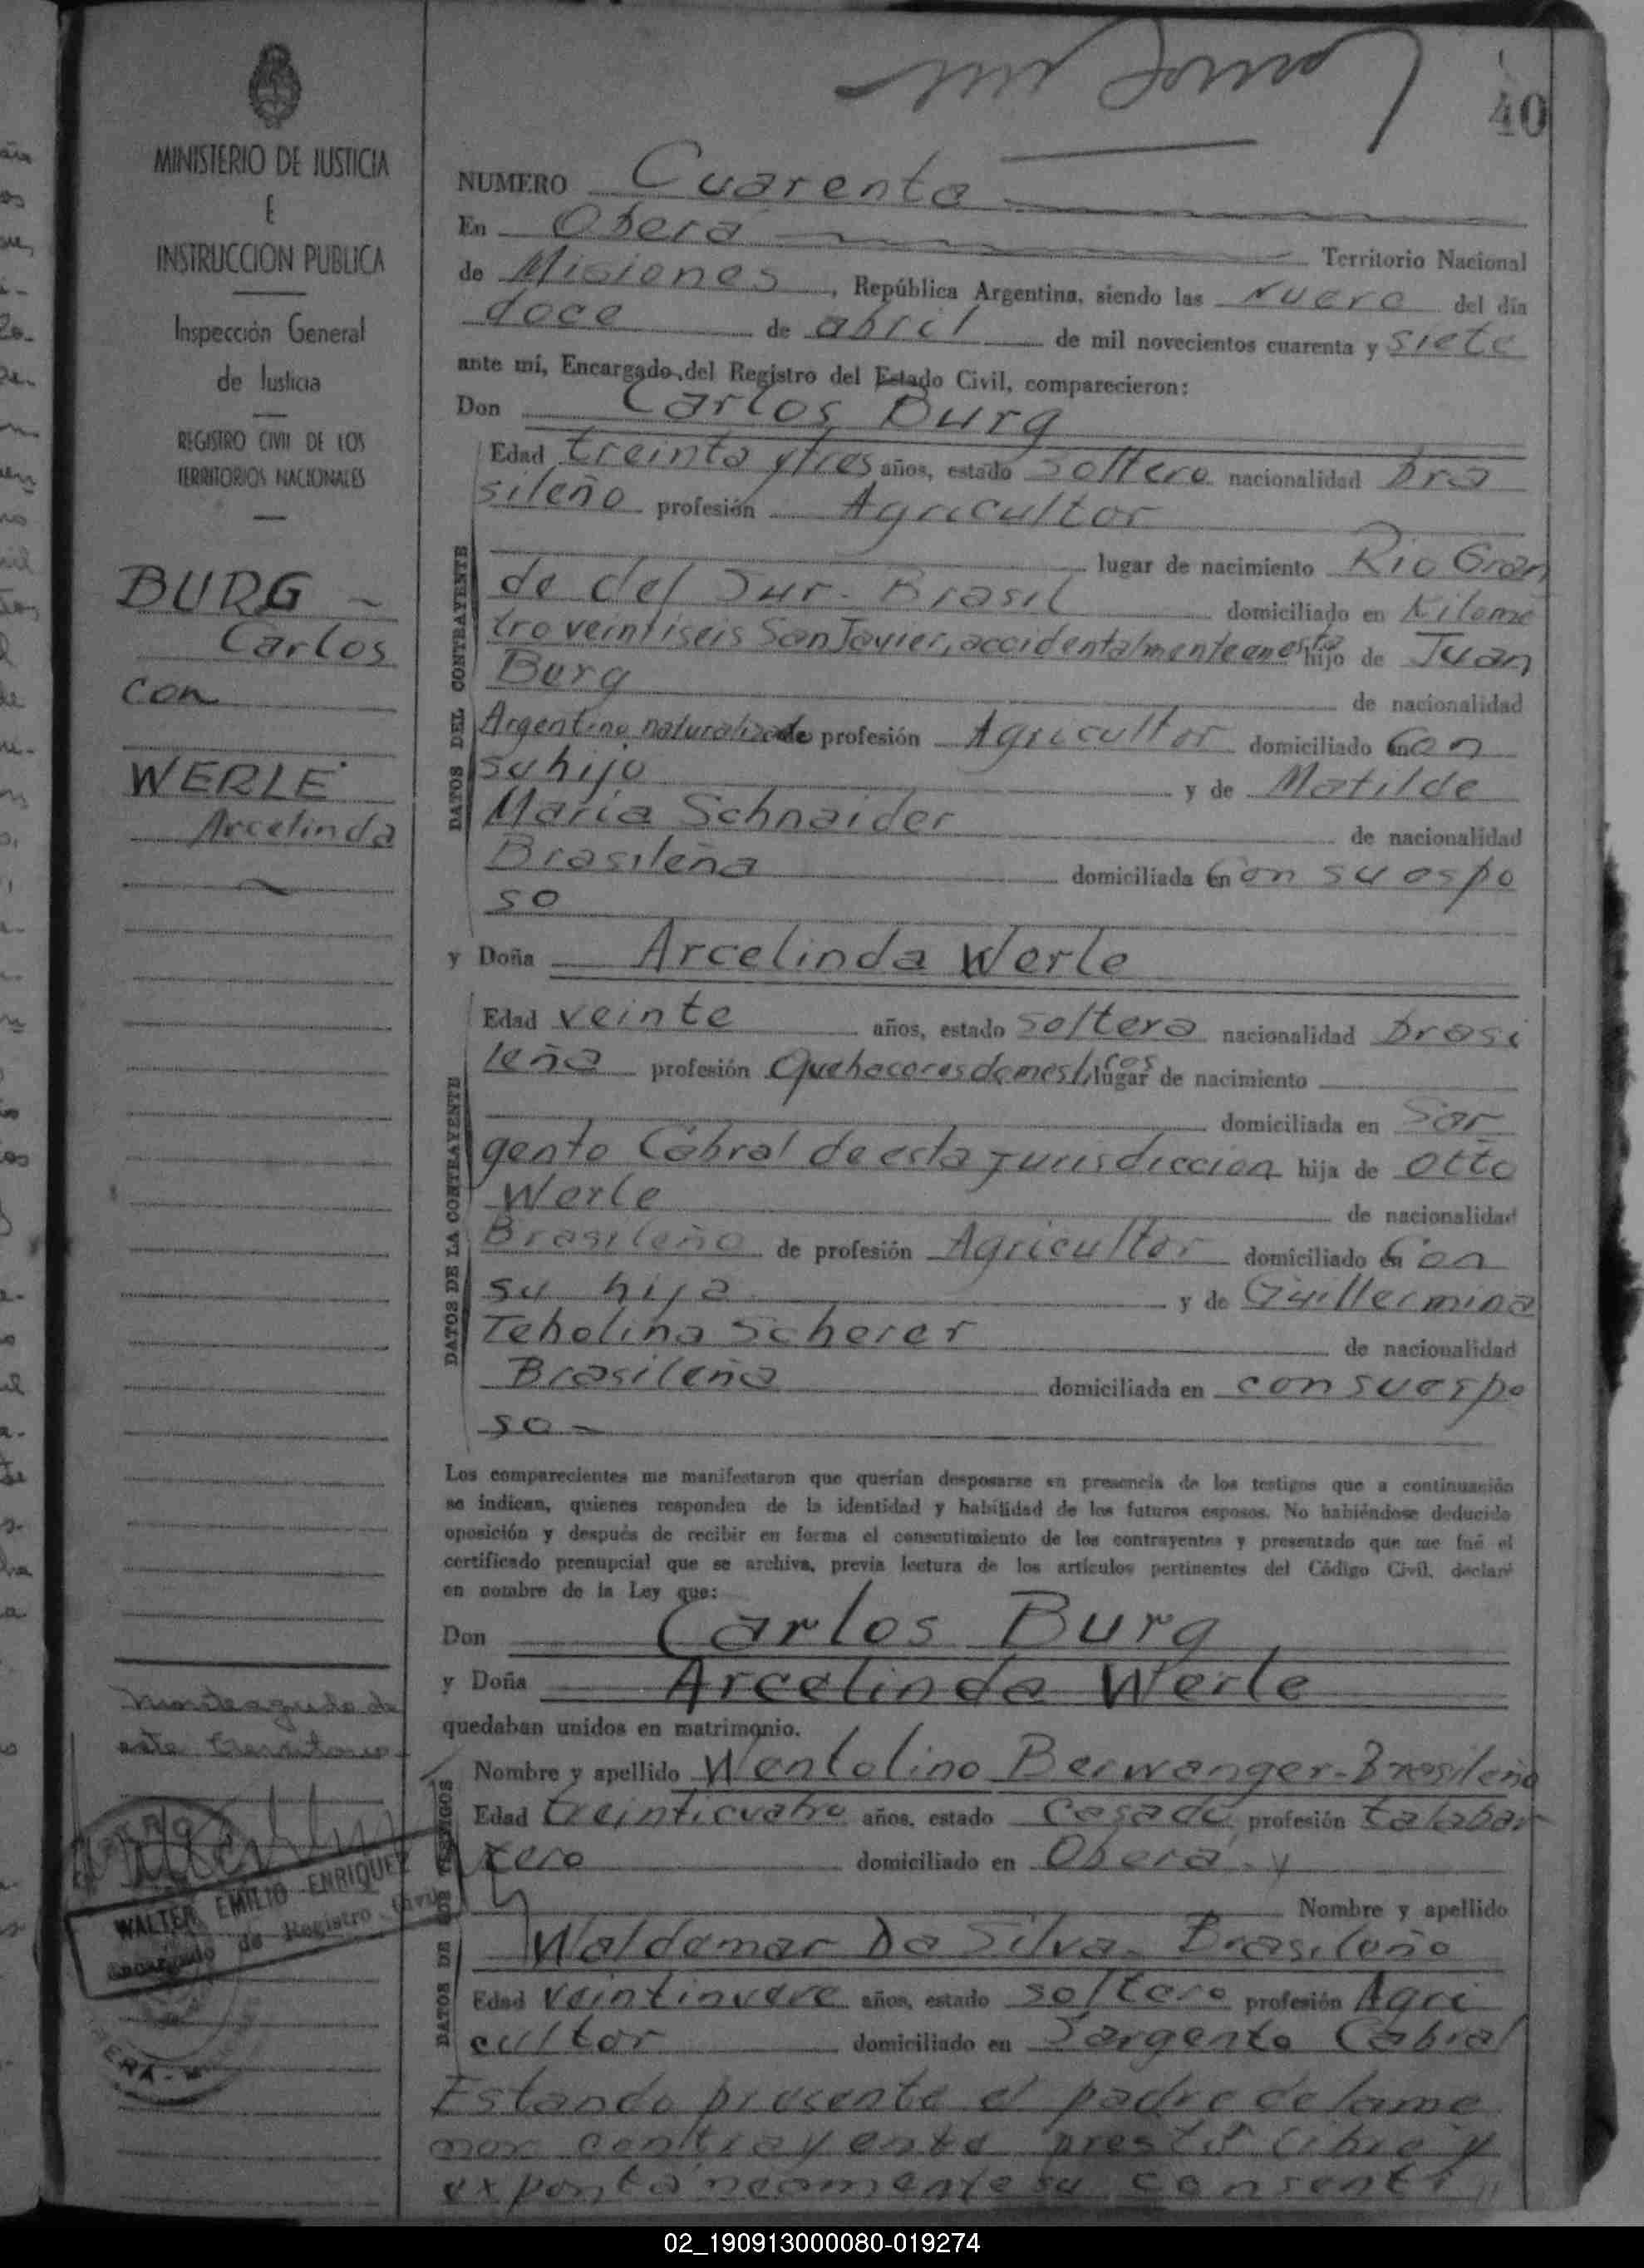 40
MINISTERIO DE JUSTICIA
E
INSTRUCCION PUBLICA
Inspección General
de Justicia
REGISTRO CIVIL DE LOS
TERRITORIOS NACIONALES
BURG -
Carlos
con
WERLE
Arcelinda
Monteagudo de
este Territorio
WALTER EMILIO ENRIQUEZ
Encargado de Registro Civil
NUMERO Cuarenta
En Oberá Territorio Nacional
de Misiones, República Argentina, siendo las Nueve del día
doce de abril de mil novecientos cuarenta y siete
ante mí, Encargado del Registro del Estado Civil, comparecieron:
Don Carlos Burg
DATOS DEL CONTRAYENTE
Edad treinta y tres años, estado soltero nacionalidad bra
sileño profesión Agricultor
lugar de nacimiento Rio Gran
de del Sur - Brasil domiciliado en Kilome
tro veintiseis San Javier, accidentalmente en esta hijo de Juan
Burg de nacionalidad
Argentino naturalizado profesión Agricultor domiciliado Con
su hijo y de Matilde
Maria Schnaider de nacionalidad
Brasileña domiciliada Con su espo
so
y Doña Arcelinda Werle
DATOS DE LA CONTRAYENTE
Edad veinte años, estado soltera nacionalidad brasi
leña profesión Quehaceres domesticos lugar de nacimiento
domiciliada en Sar
gento Cabral de esta jurisdiccion hija de Otto
Werle de nacionalidad
Brasileño de profesión Agricultor domiciliado Con
su hija y de Guillermina
Tebolina Scherer de nacionalidad
Brasileña domiciliada en con su espo
so -
Los comparecientes me manifestaron que querían desposarse en presencia de los testigos que a continuación
se indican, quienes responden de la identidad y habilidad de los futuros esposos. No habiéndose deducido
oposición y después de recibir en forma el consentimiento de los contrayentes y presentado que me fué el
certificado prenupcial que se archiva, previa lectura de los artículos pertinentes del Código Civil, declaré
en nombre de la Ley que:
Don Carlos Burg
y Doña Arcelinda Werle
quedaban unidos en matrimonio.
DATOS DE LOS TESTIGOS
Nombre y apellido Wentolino Berwanger - Brasileño
Edad treinticuatro años, estado Casado profesión talabar
tero domiciliado en Oberá y
Nombre y apellido
Waldemar Da Silva - Brasileño
Edad veintinueve años, estado soltero profesión Agri
cultor domiciliado en Sargento Cabral
Estando presente el padre de la me
nor contrayente prestó libre y
expontáneamente su consenti
02_190913000080-019274